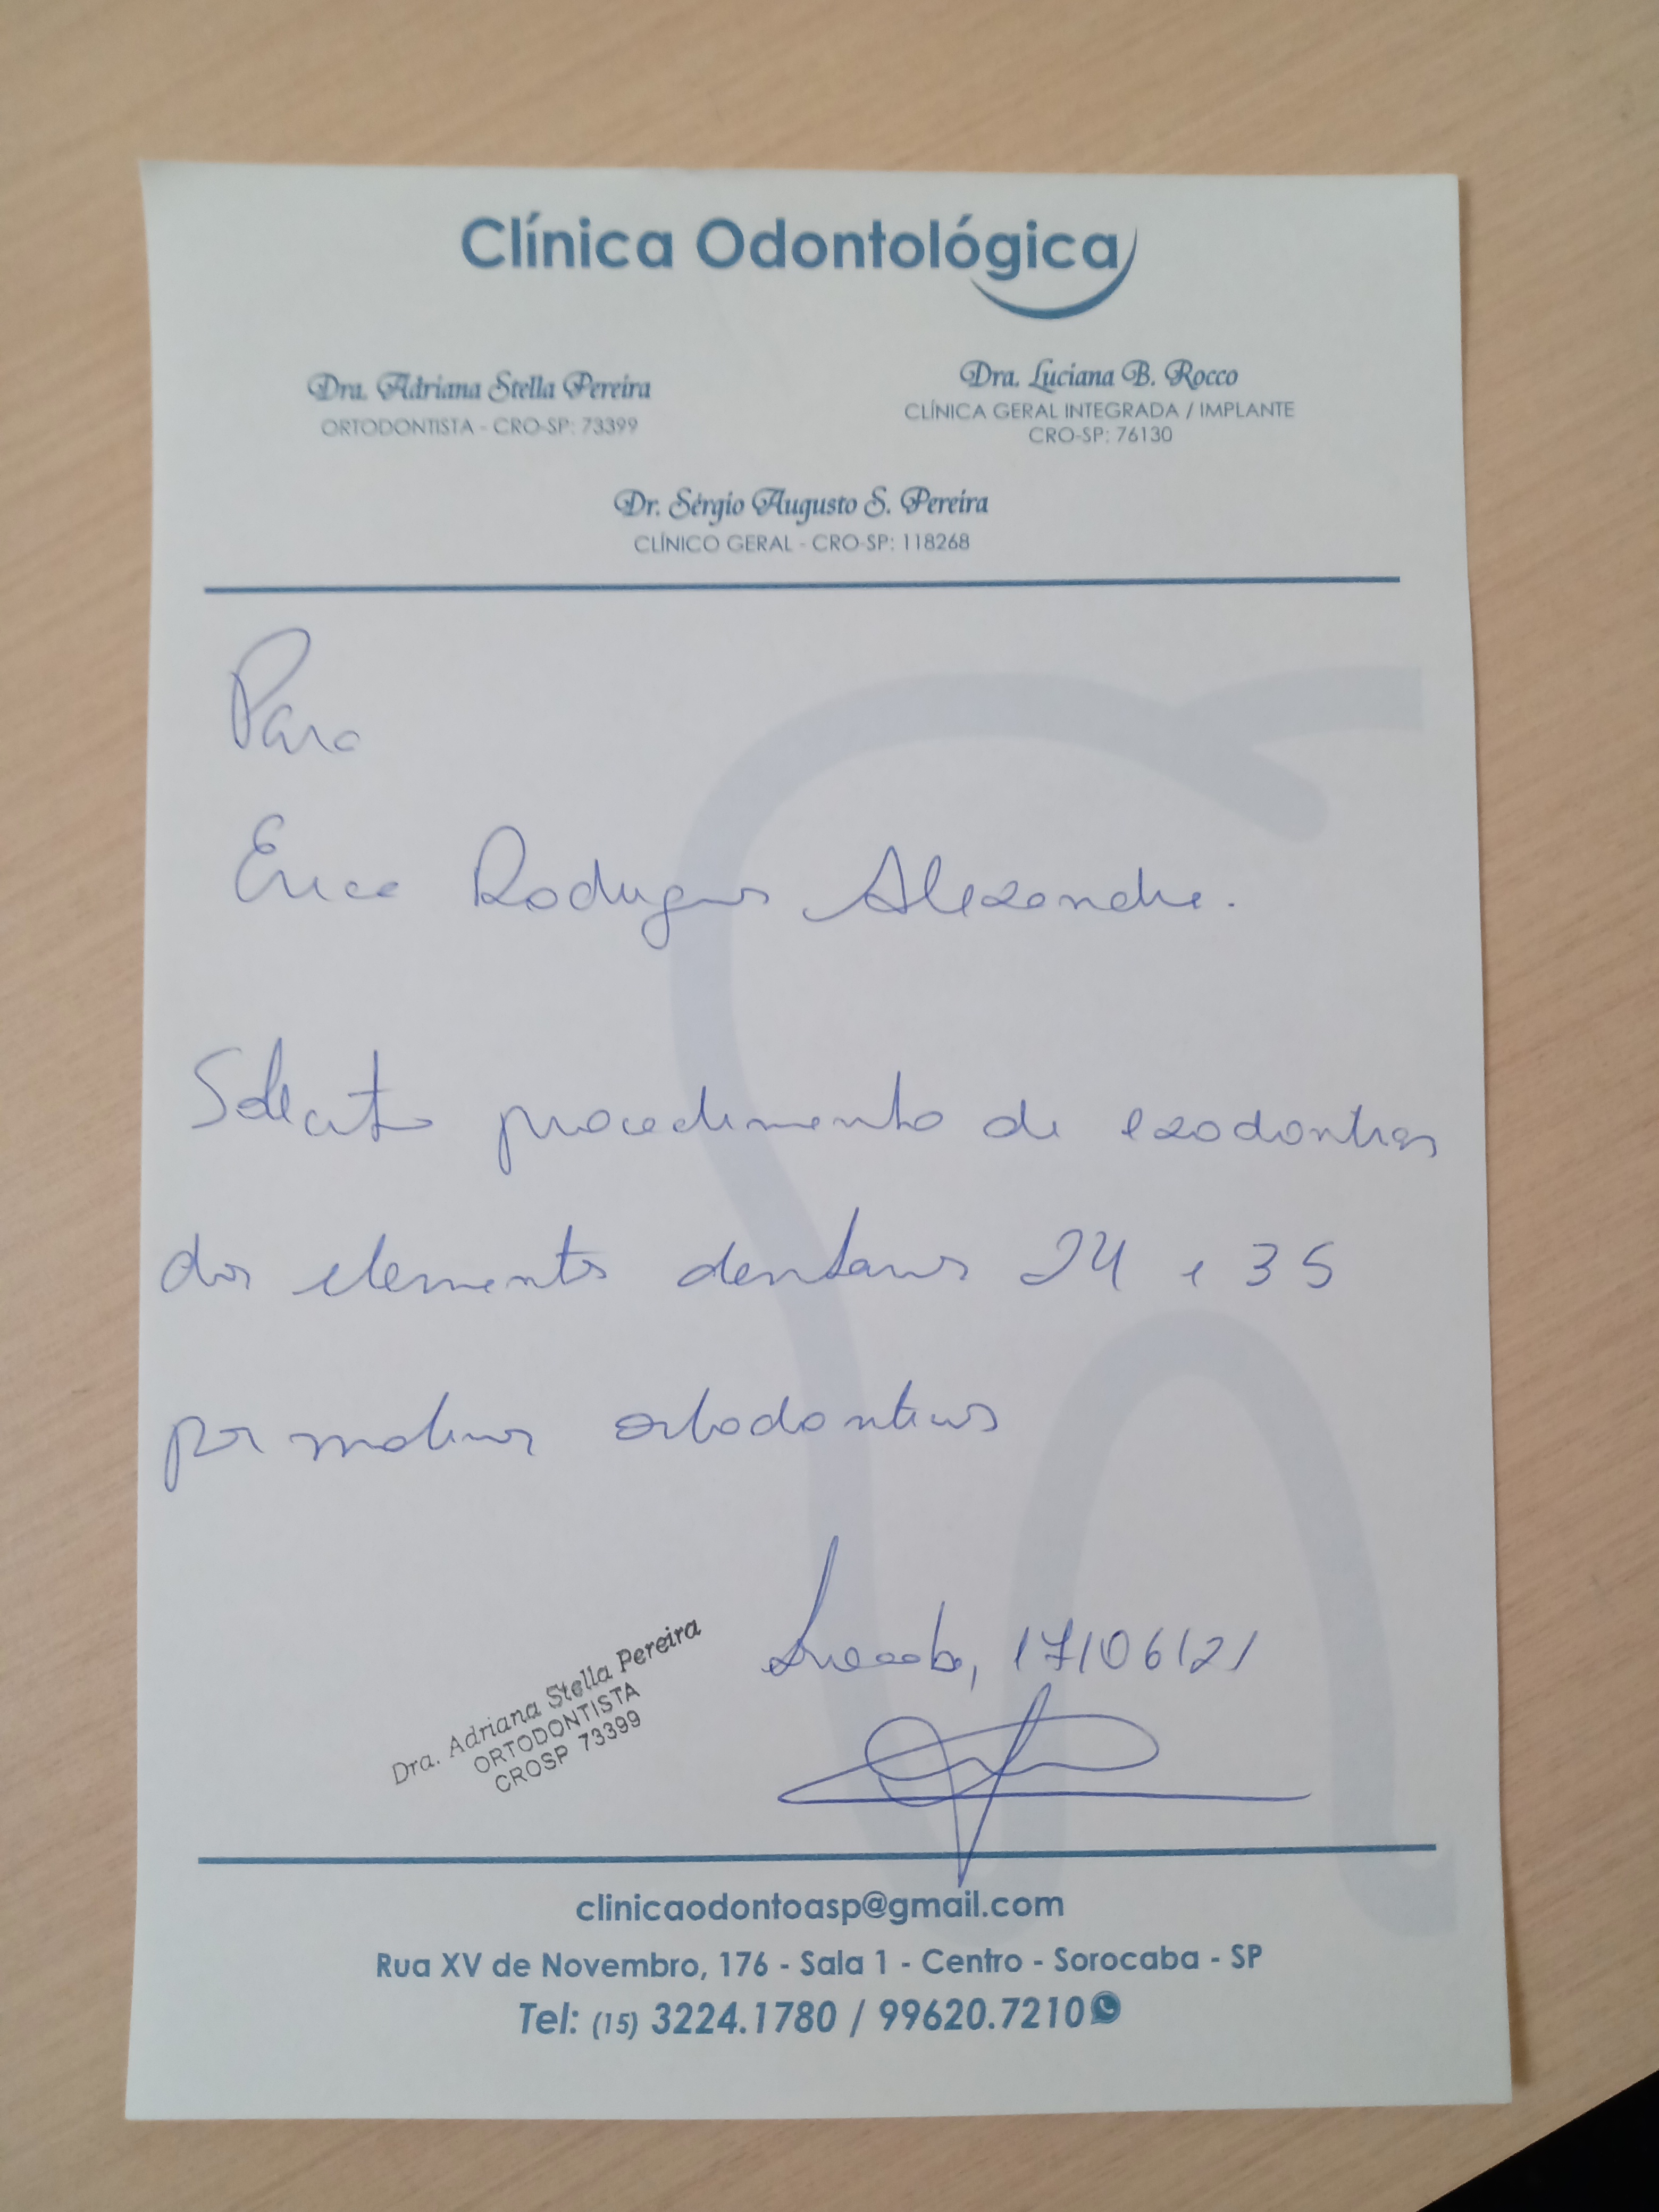 Clínica Odontológica
Dra. Adriana Stella Pereira
ORTODONTISTA - CRO-SP: 73399
Dra. Luciana B. Rocco
CLÍNICA GERAL INTEGRADA / IMPLANTE
CRO-SP: 76130
Dr. Sérgio Augusto S. Pereira
CLÍNICO GERAL - CRO-SP: 118268
Para
Erica Rodrigues Alexandre.
Solicito procedimento de exodontias
dos elementos dentarios 24 e 35
por motivos ortodonticos
Sorocaba, 17/06/21
Dra. Adriana Stella Pereira
ORTODONTISTA
CROSP 73399
clinicaodontoasp@gmail.com
Rua XV de Novembro, 176 - Sala 1 - Centro - Sorocaba - SP
Tel: (15) 3224.1780 / 99620.7210